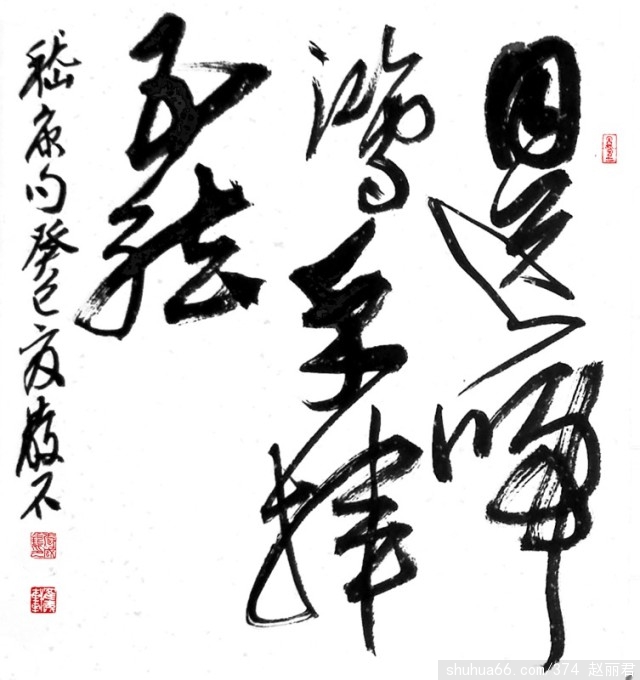 目送歸
鴻手揮
五弦
嵇康句癸巳夏
shuhua66.com/374 赵丽君